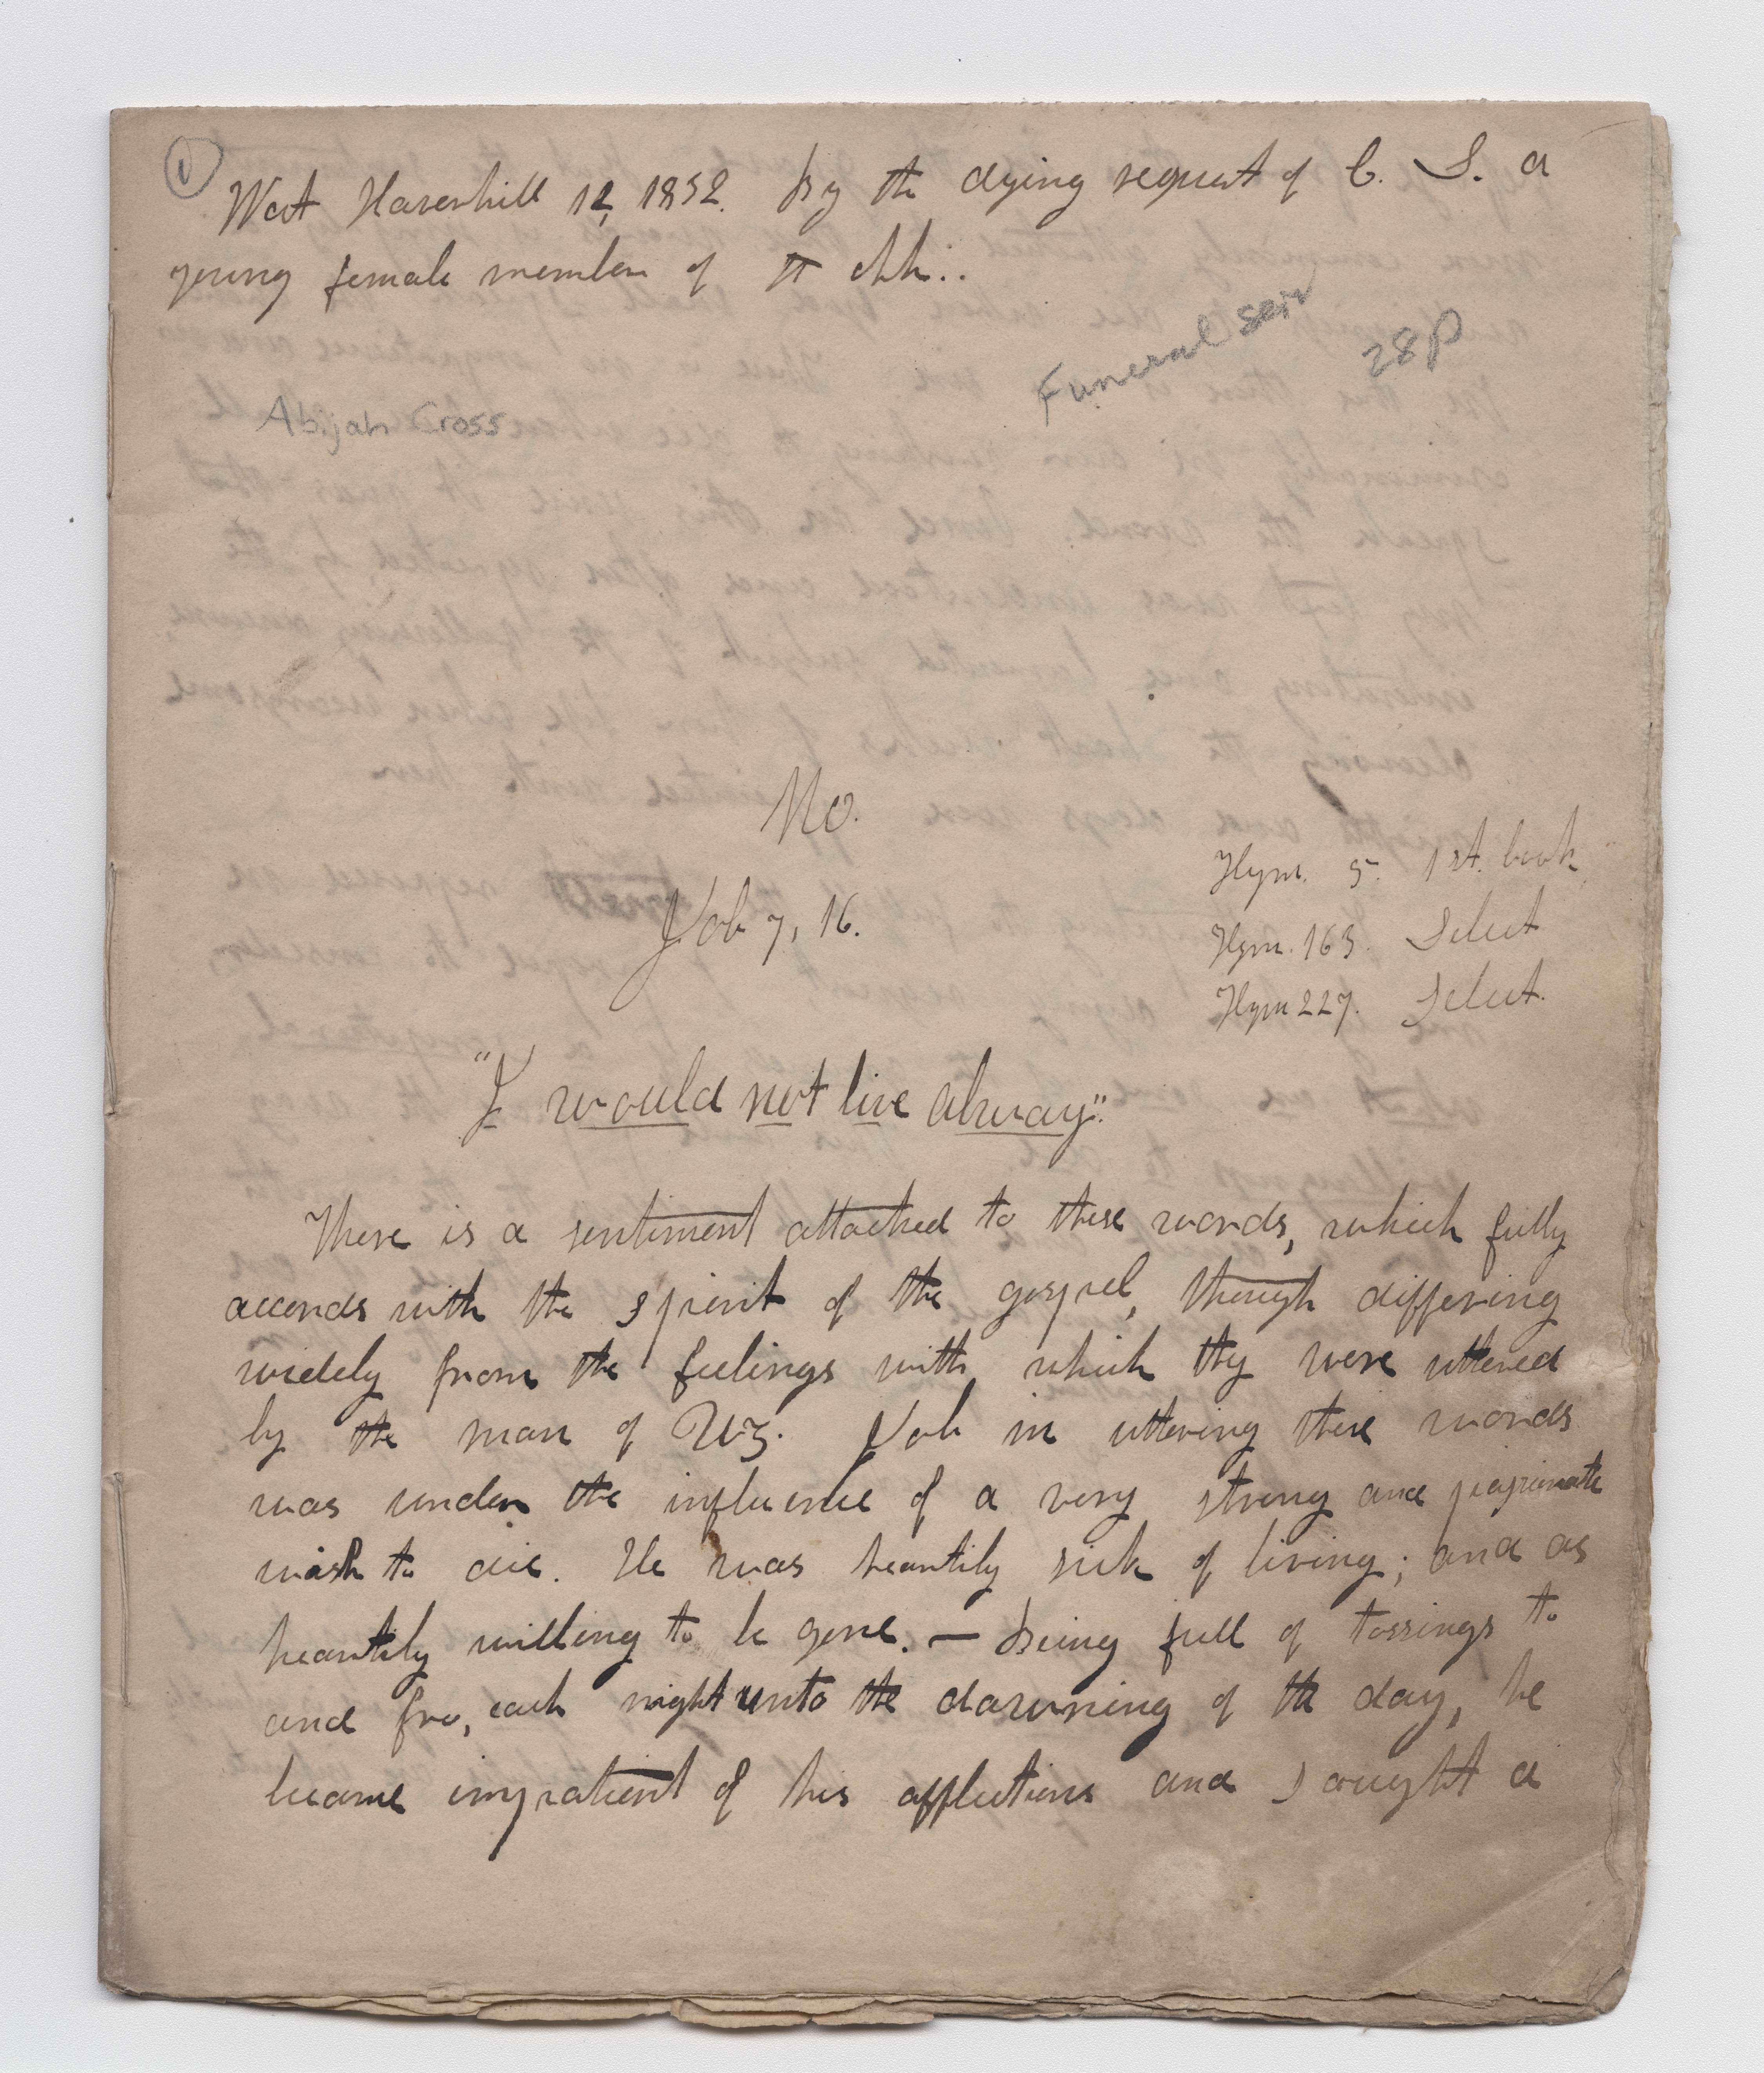 1
West Haverhill 12, 1832. By the dying request of C. S. a
young female member of th chh..
Funeral ser
28p
Abijah Cross
No.
Job 7, 16.
Hym. 5. 1st. book
Hym. 163. Select
Hym 227. Select.
"I would not live alway".
There is a sentiment attached to these words, which fully
accords with the spirit of the gospel, though differing
widely from the feelings with which thy were uttered
by the man of Uz. Job in uttering these words
was under the influence of a very strong and passionate
wish to die. He was heartily sick of living; and as
heartily willing to be gone. — Being full of tossings to
and fro, each night unto the dawning of the day, he
became impatient of his afflictions and sought a